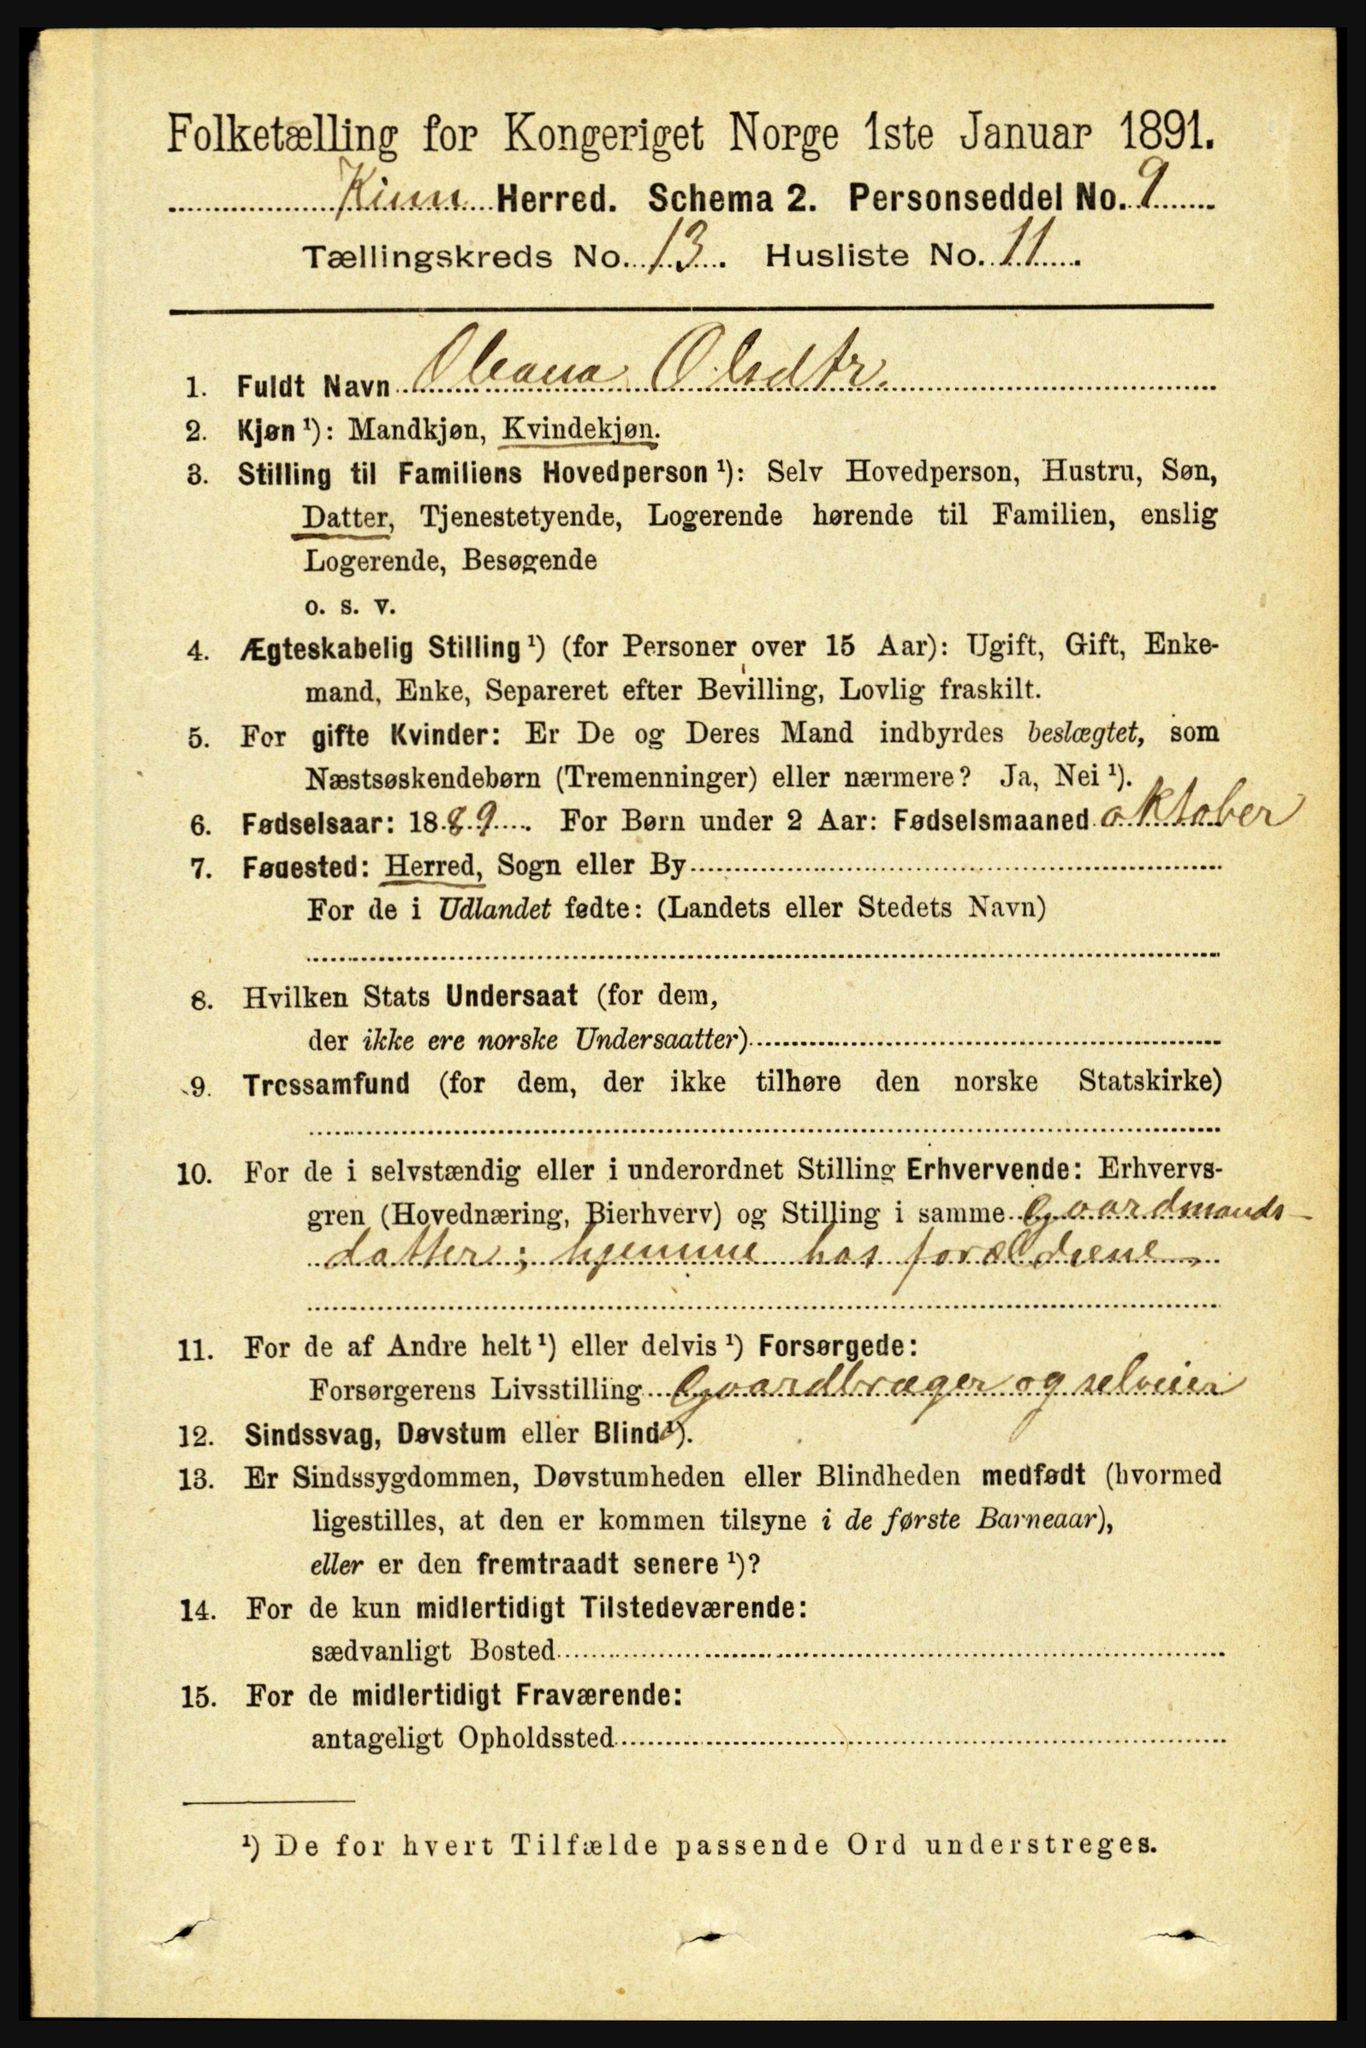 Folketælling for Kongeriget Norge 1ste Januar 1891.
Kinn Herred. Schema 2. Personseddel No. 9
Tællingskreds No. 13. Husliste No. 11.
1. Fuldt Navn Oleana Olsdtr.
2. Kjøn ¹): Mandkjøn, Kvindekjøn.
3. Stilling til Familiens Hovedperson ¹): Selv Hovedperson, Hustru, Søn,
Datter, Tjenestetyende, Logerende hørende til Familien, enslig
Logerende, Besøgende
o. s. v.
4. Ægteskabelig Stilling ¹) (for Personer over 15 Aar): Ugift, Gift, Enke-
mand, Enke, Separeret efter Bevilling, Lovlig fraskilt.
5. For gifte Kvinder: Er De og Deres Mand indbyrdes beslægtet, som
Næstsøskendebørn (Tremenninger) eller nærmere? Ja, Nei ¹).
6. Fødselsaar: 1889. For Børn under 2 Aar: Fødselsmaaned oktober
7. Fødested: Herred, Sogn eller By
For de i Udlandet fødte: (Landets eller Stedets Navn)
8. Hvilken Stats Undersaat (for dem,
der ikke ere norske Undersaatter)
9. Trossamfund (for dem, der ikke tilhøre den norske Statskirke)
10. For de i selvstændig eller i underordnet Stilling Erhvervende: Erhvervs-
gren (Hovednæring, Bierhverv) og Stilling i samme Gaardmands-
datter; hjemme hos forældrene,
11. For de af Andre helt ¹) eller delvis ¹) Forsørgede:
Forsørgerens Livsstilling Gaardbruger og selveier
12. Sindssvag, Døvstum eller Blind ¹).
13. Er Sindssygdommen, Døvstumheden eller Blindheden medfødt (hvormed
ligestilles, at den er kommen tilsyne i de første Barneaar),
eller er den fremtraadt senere ¹)?
14. For de kun midlertidigt Tilstedeværende:
sædvanligt Bosted
15. For de midlertidigt Fraværende:
antageligt Opholdssted
¹) De for hvert Tilfælde passende Ord understreges.